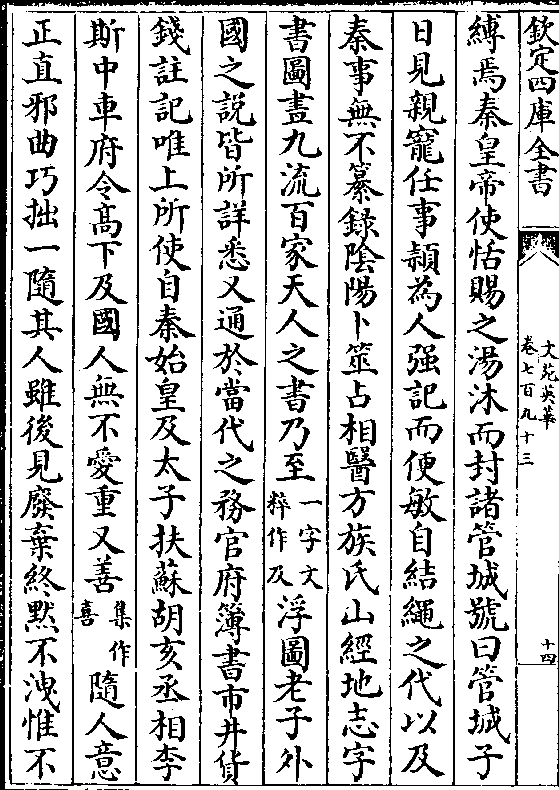 欽定四庫全書
文苑英華
卷七百九十三
十四
縛焉秦皇帝使恬賜之湯沐而封諸管城號曰管城子
日見親寵任事頴為人强記而便敏自結繩之代以及
秦事無不纂錄陰陽卜筮占相醫方族氏山經地志字
書圖畫九流百家天人之書乃至一字文粹作及浮圖老子外
國之説皆所詳悉又通於當代之務官府簿書市井貨
錢註記唯上所使自秦始皇及太子扶蘇胡亥丞相李
斯中車府令髙下及國人無不愛重又善集作喜隨人意
正直邪曲巧拙一隨其人雖後見廢棄終黙不洩惟不